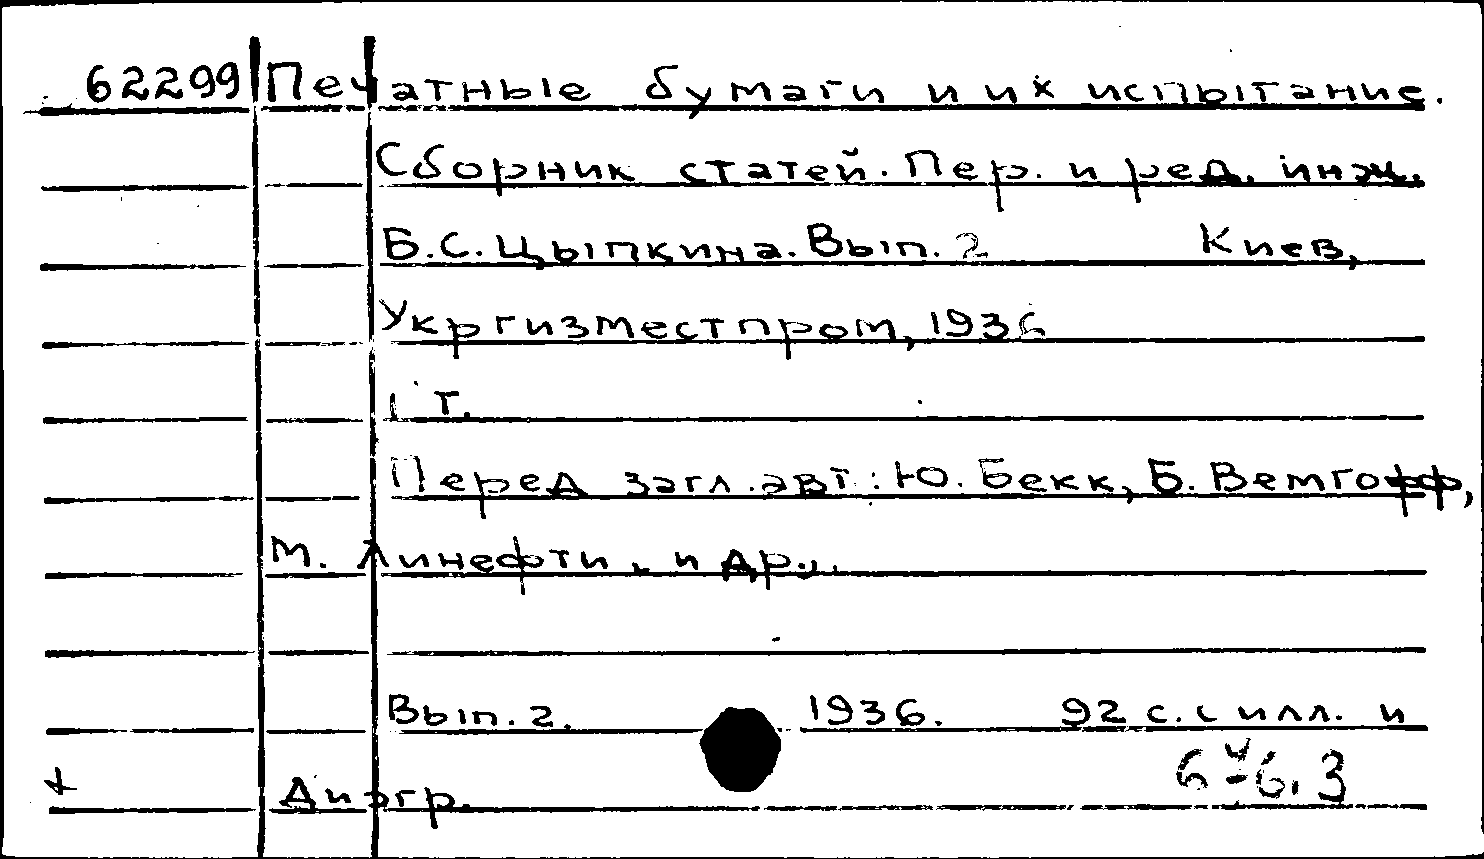 62299 Печатные бумаги и их испытание.
Сборник статей. Пер. и ред. инж.
Б.С. Цыпкина. Вып. 2 Киев,
Укргизместпром, 1936
1 т.
Перед загл. авт: Ю. Бекк, Б. Вемгофф,
М. Линефти, и др..
Вып. 2. 1936. 92 с. с илл. и
+ Диагр.